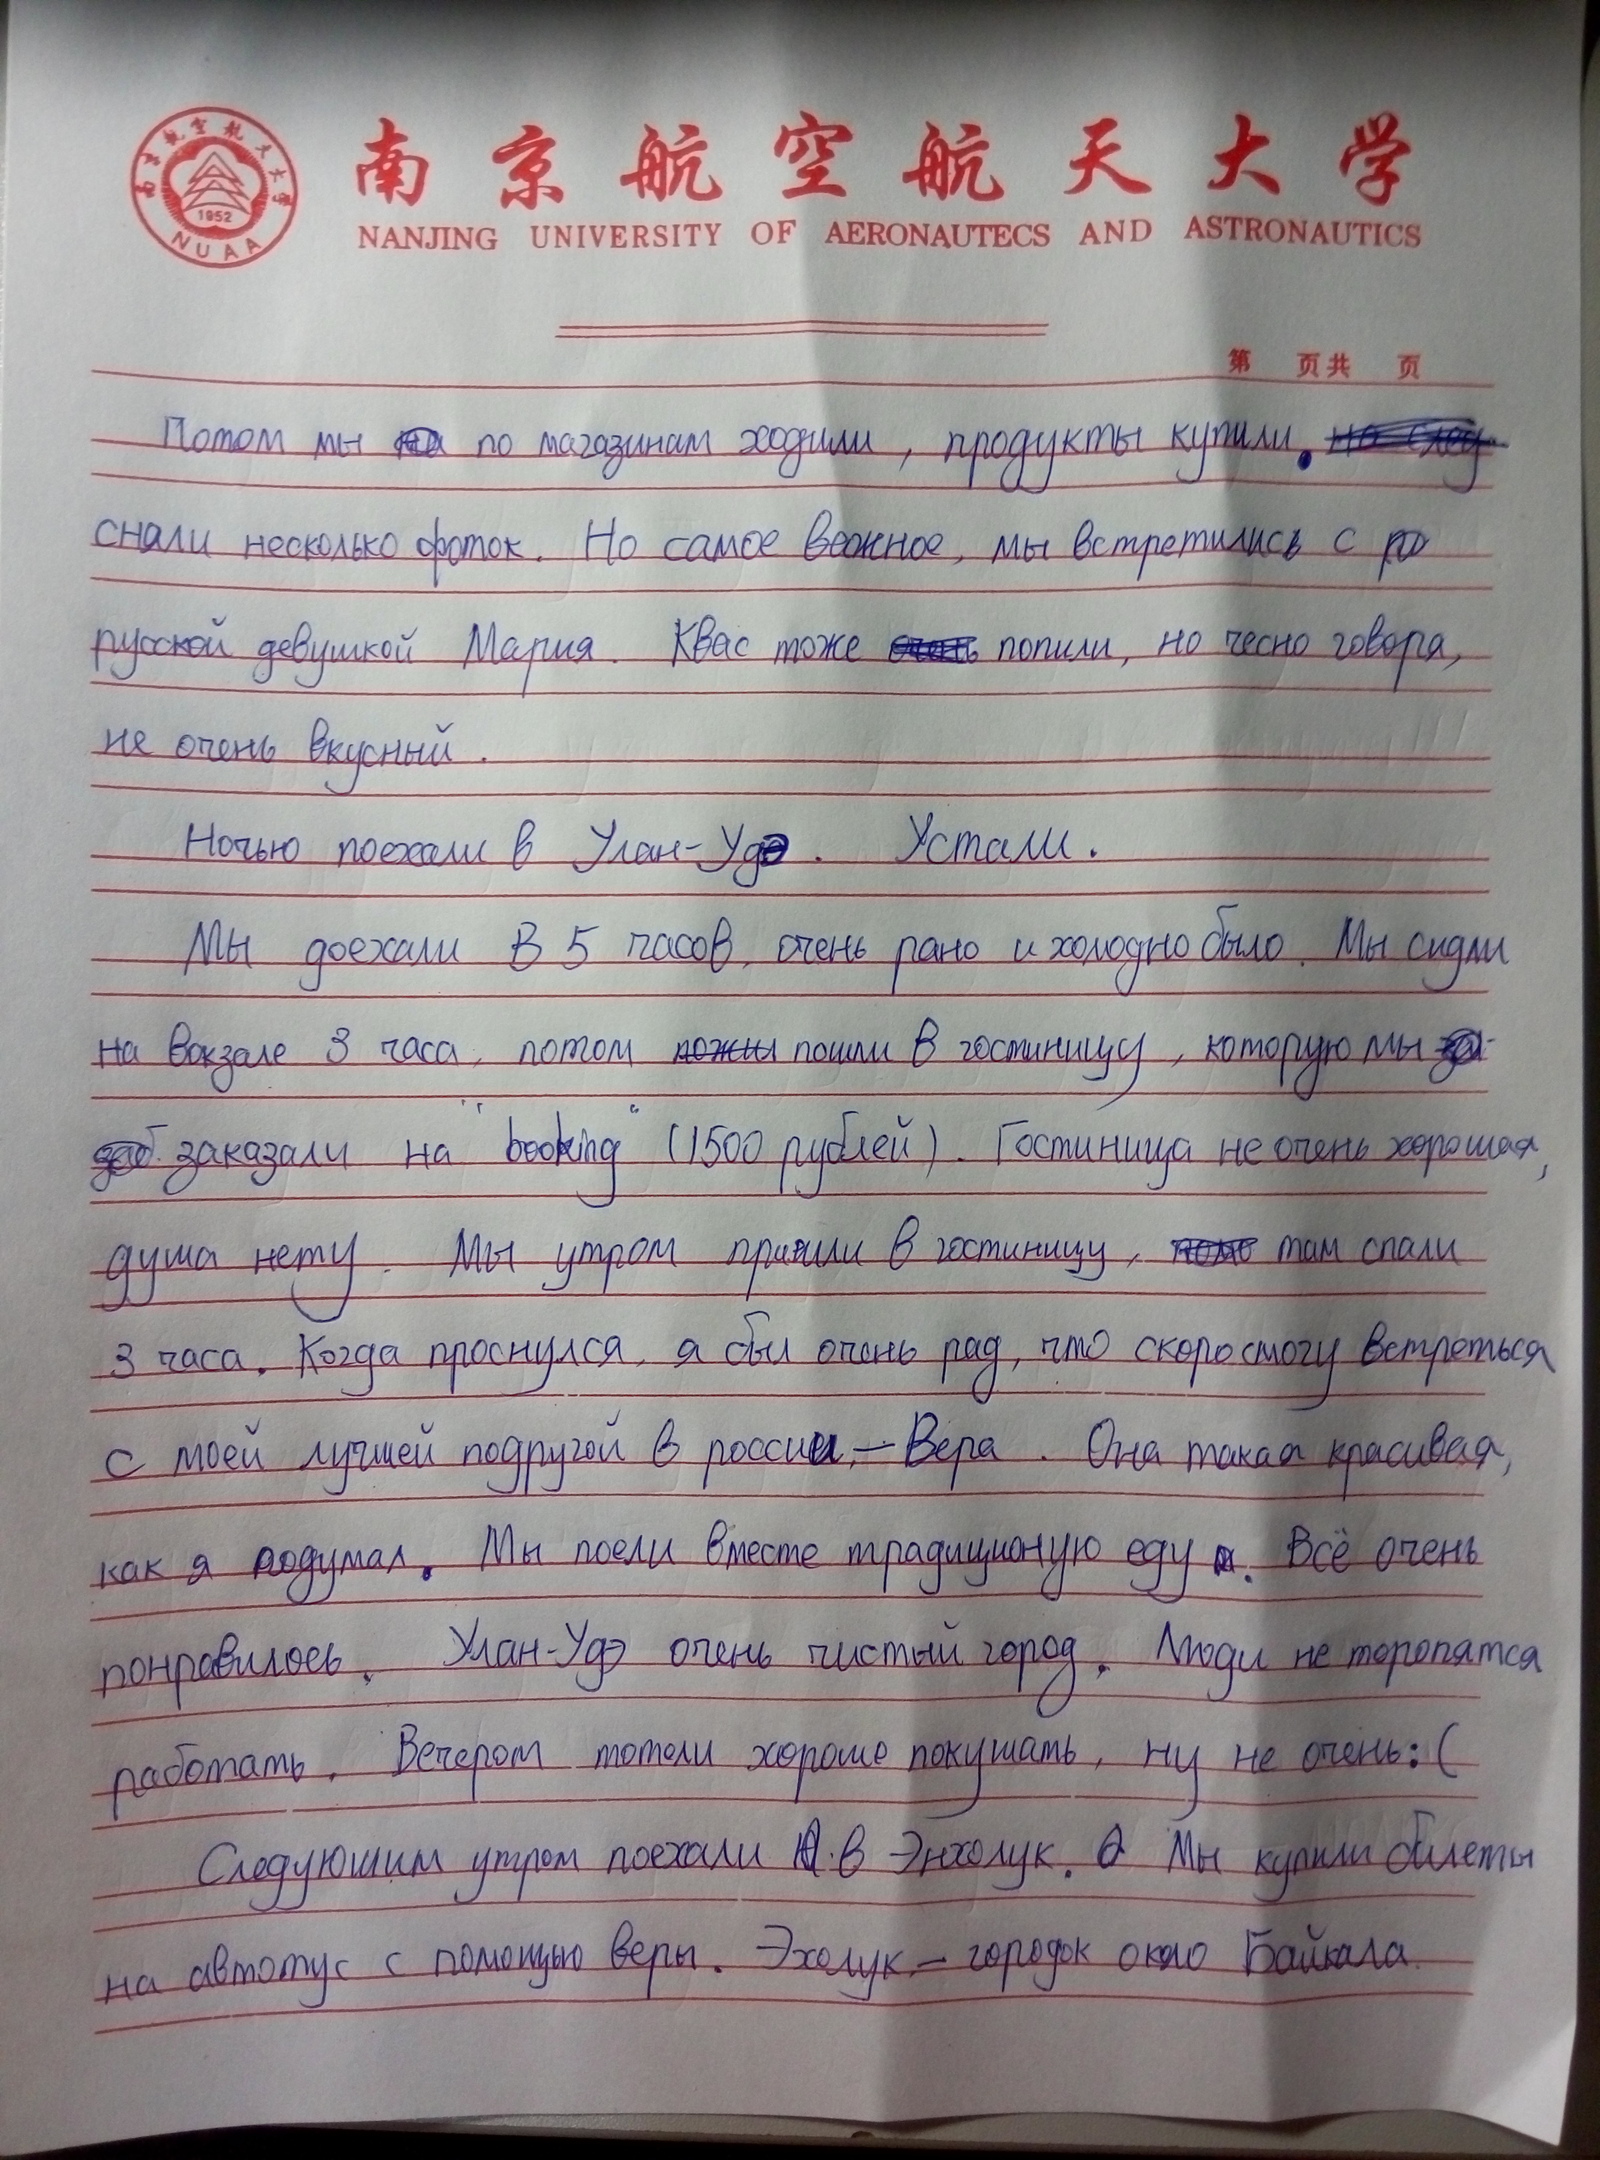 南京航空航天大学
NANJING UNIVERSITY OF AERONAUTECS AND ASTRONAUTICS
1952
NUAA
第 页共 页
Потом мы по магазинам ходили, продукты купили.
снали несколько фоток. Но самое важное, мы встретились с
русской девушкой Мария. Квас тоже попили, но чесно говоря,
не очень вкусный.
Ночью поехали в Улан-Удэ. Устали.
Мы доехали в 5 часов, очень рано и холодно было. Мы сидли
на вокзале 3 часа, потом пошли в гостиницу, которую мы
заказали на "booking" (1500 рублей). Гостиница не очень хорошая,
душа нету. Мы утром пришли в гостиницу, там спали
3 часа. Когда проснулся, я был очень рад, что скоро смогу встреться
с моей лучшей подругой в россии, — Вера. Она такая красивая,
как я подумал. Мы поели вместе традиционую еду. Всё очень
понравилось. Улан-Удэ очень чистый город. Люди не торопятся
работать. Вечером тотели хороше покушать, ну не очень:(
Следуюшим утром поехали в Энхолук. Мы купили билеты
на автопус с помощью веры. Эхолук — городок около Байкала.